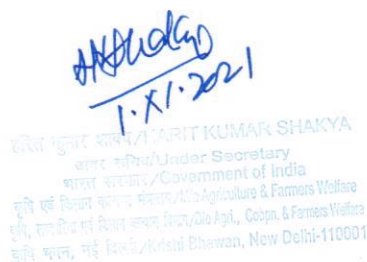 1.XI.2021
हरित कुमार शाक्य/HARIT KUMAR SHAKYA
अवर सचिव/Under Secretary
भारत सरकार/Government of India
कृषि एवं किसान कल्याण मंत्रालय/M/o Agriculture & Farmers Welfare
कृषि, सहकारिता एवं किसान कल्याण विभाग/D/o Agri., Coopn. & Farmers Welfare
कृषि भवन, नई दिल्ली/Krishi Bhawan, New Delhi-110001